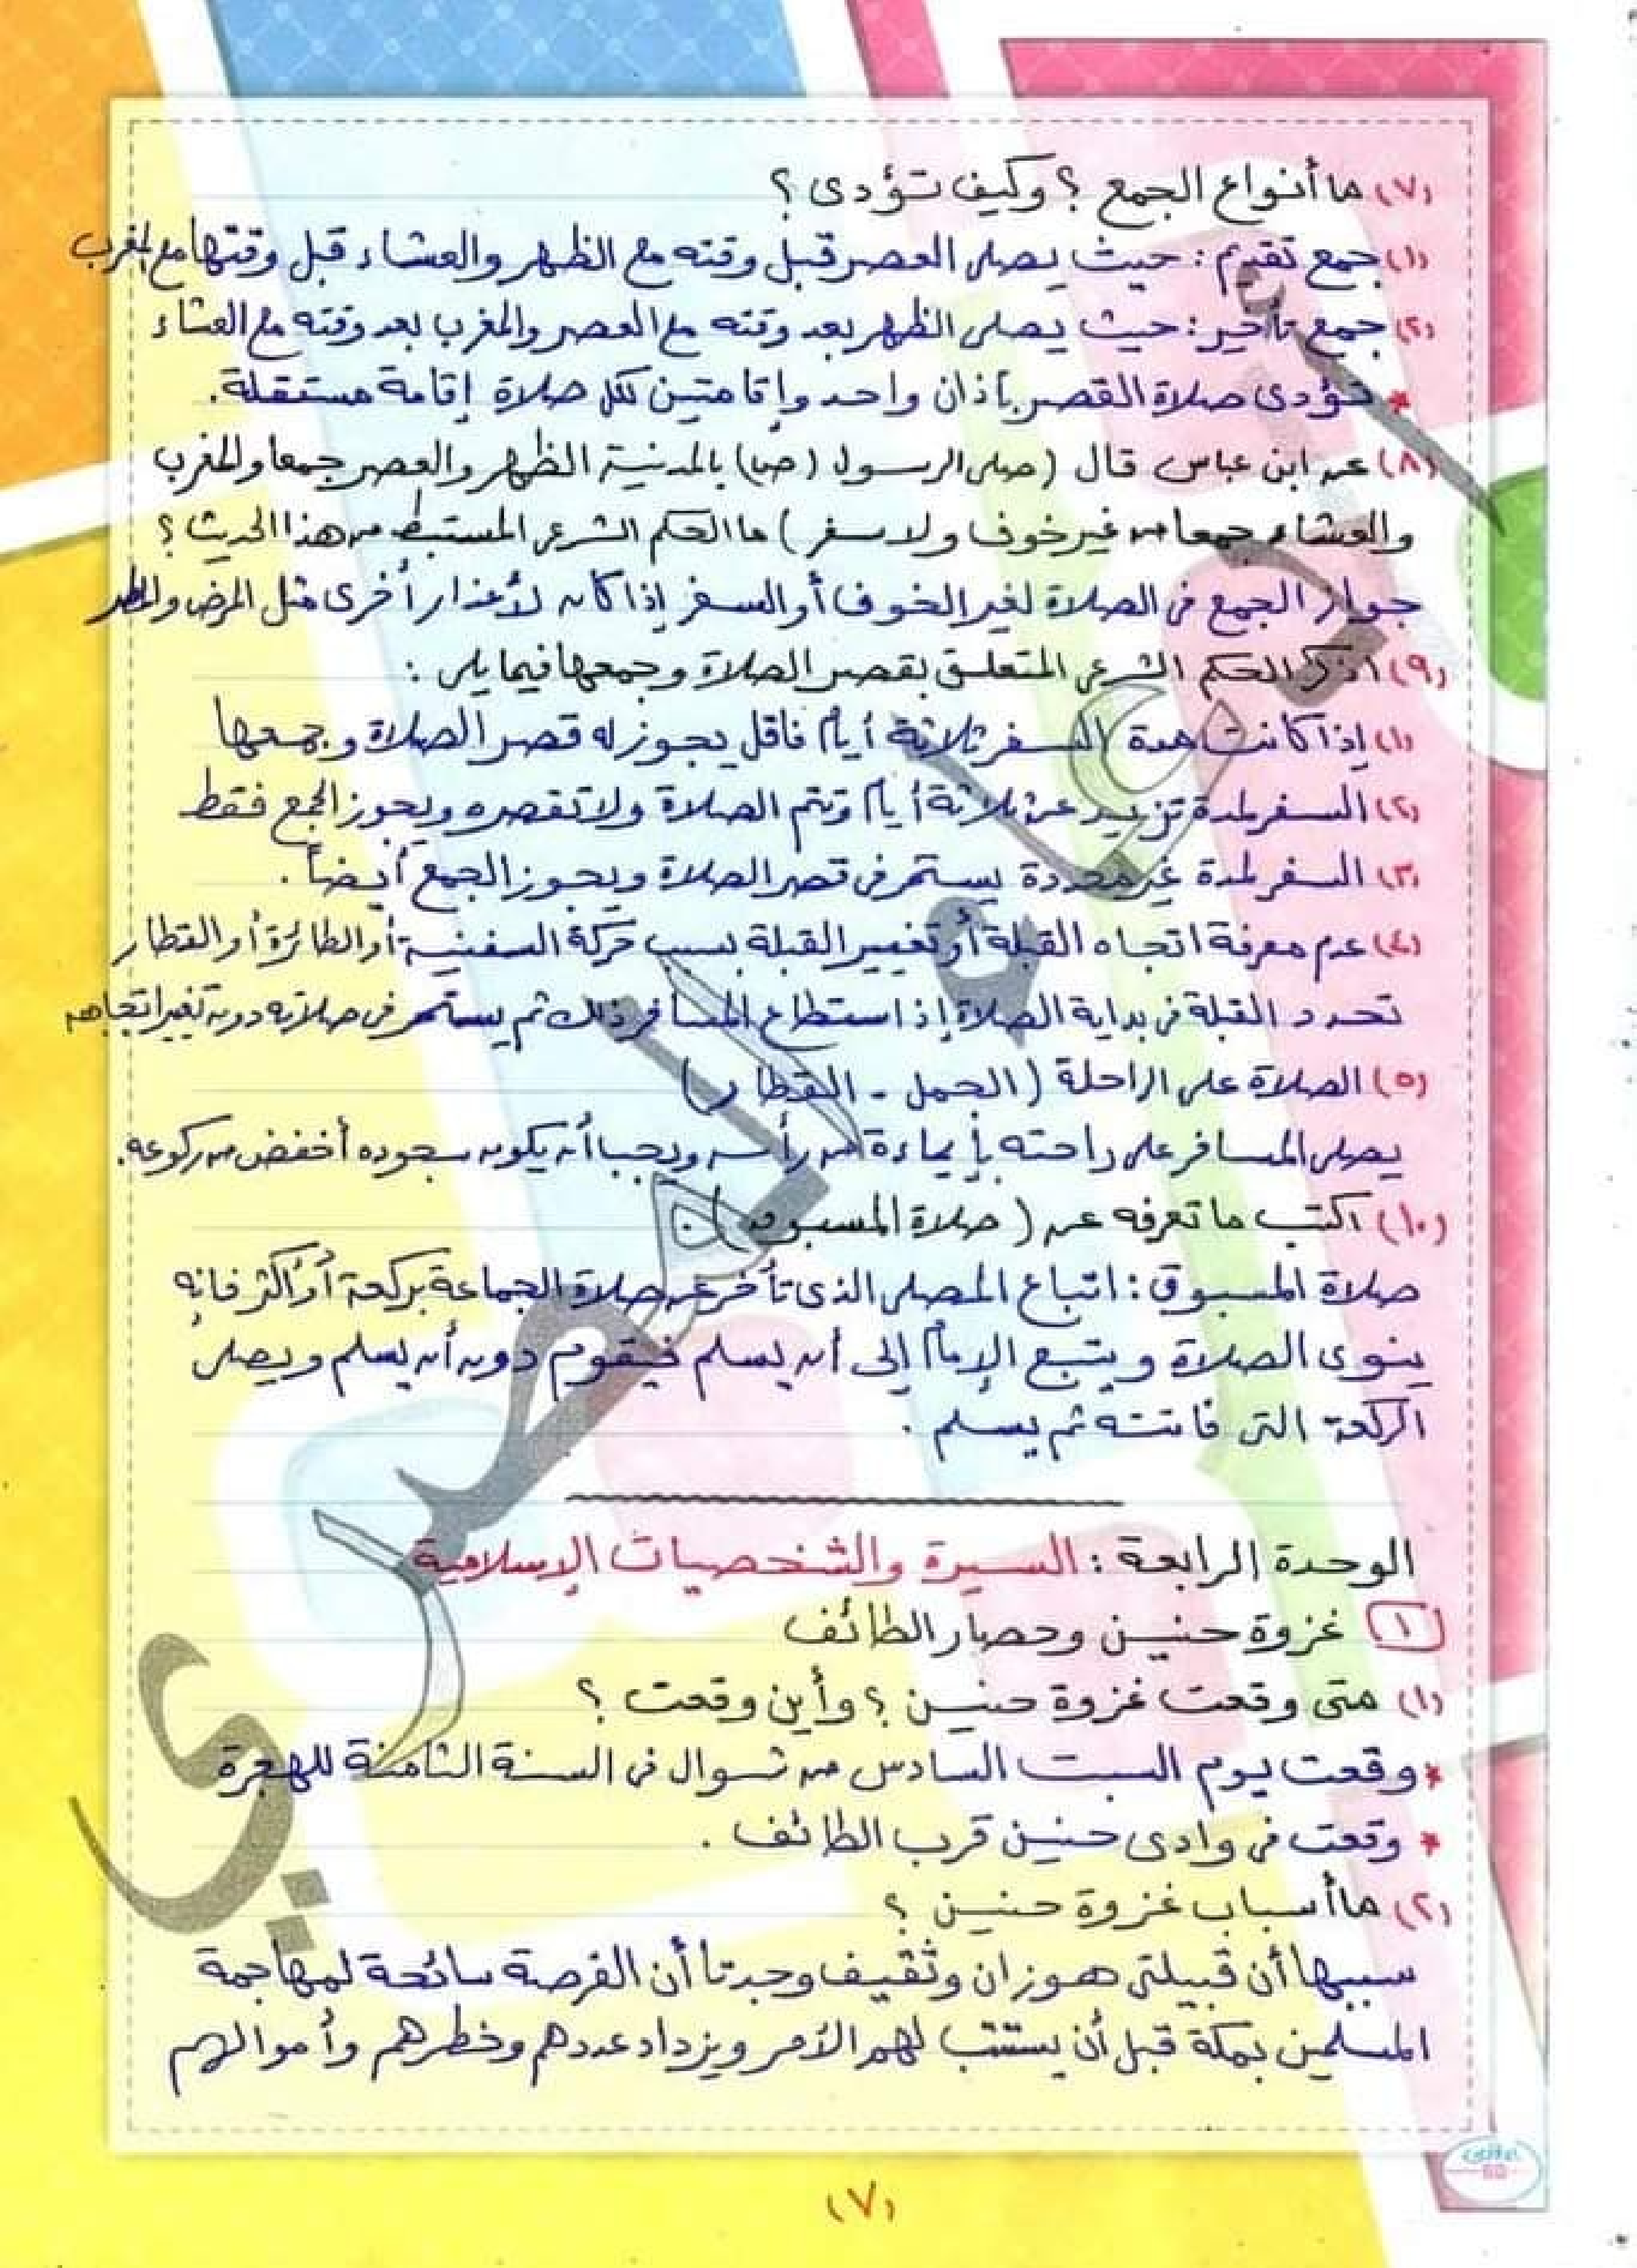 (٧) ما أنواع الجمع ؟ وكيف تؤدى ؟
(١) جمع تقديم : حيث يصلى العصر قبل وقته مع الظهر والعشاء قبل وقتها مع المغرب
(٢) جمع تأخير : حيث يصلى الظهر بعد وقته مع العصر والمغرب بعد وقته مع العشاء
* تؤدى صلاة القصر بأذان واحد وإقامتين لكل صلاة إقامة مستقلة .
(٨) عن ابن عباس قال (صلى الرسول (ص) بالمدينة الظهر والعصر جمعا والمغرب
والعشاء جمعا من غير خوف ولا سفر ) ما الحكم الشرعى المستنبط من هذا الحديث ؟
جواز الجمع فى الصلاة لغير الخوف أو السفر إذا كان لأعذار أخرى مثل المرض والمطر
(٩) اذكر الحكم الشرعى المتعلق بقصر الصلاة وجمعها فيما يلى :
(١) إذا كانت مدة السفر ثلاثة أيام فاقل يجوز له قصر الصلاة وجمعها
(٢) السفر لمدة تزيد عن ثلاثة أيام وتتم الصلاة ولا تقصره ويجوز الجمع فقط
(٣) السفر لمدة غير محددة يستمر فى قصر الصلاة ويجوز الجمع أيضاً .
(٤) عدم معرفة اتجاه القبلة أو تغيير القبلة بسبب حركة السفينة أو الطائرة أو القطار
تحدد القبلة فى بداية الصلاة إذا استطاع المسافر ذلك ثم يستمر فى صلاته دون تغير اتجاهه
(٥) الصلاة على الراحلة ( الجمل - القطار )
يصلى المسافر على راحته بإيماءة من رأسه ويجب أن يكون سجوده أخفض من ركوعه .
(١٠) اكتب ما تعرفه عن ( صلاة المسبوق ) .
صلاة المسبوق : اتباع المصلى الذى تأخر عن صلاة الجماعة بركعة أو أكثر فإنه
ينوى الصلاة ويتبع الإمام إلى أن يسلم فيقوم دون أن يسلم ويصلى
الركعة التى فاتته ثم يسلم .
الوحدة الرابعة : السيرة والشخصيات الإسلامية
١ غزوة حنين وحصار الطائف
(١) متى وقعت غزوة حنين ؟ وأين وقعت ؟
* وقعت يوم السبت السادس من شوال فى السنة الثامنة للهجرة
* وقعت فى وادى حنين قرب الطائف .
(٢) ما أسباب غزوة حنين ؟
سببها أن قبيلتى هوزان وثقيف وجدتا أن الفرصة سانحة لمهاجمة
المسلمين بمكة قبل أن يستتب لهم الأمر ويزداد عددهم وخطرهم وأموالهم
(٧)